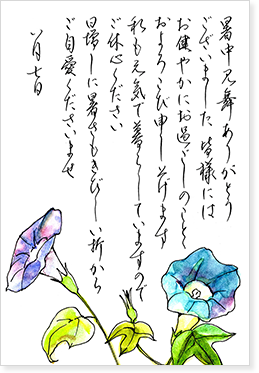 暑中見舞ありがとう
ございました 皆様には
お健やかにお過ごしのことと
およろこび申し上げます
私も元気で暮らしていますので
ご休心ください
日増しに暑さもきびしい折から
ご自愛くださいませ
八月七日